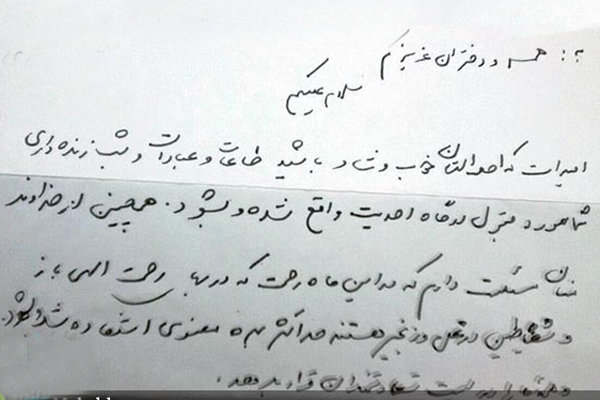 به: همسر و دختران عزیزم
سلام علیکم
امید است که احوالتان خوب و شاد باشید طاعات و عبادات و شب زنده داری
شما مورد قبول درگاه احدیت واقع شده و بشود. همچنین از خداوند
منان مسئلت دارم که در این ماه رحمت که درهای رحمت الهی باز
و شیاطین در غل و زنجیر هستند حداکثر بهره معنوی استفاده شده
و همه ما را در لیست سعادتمندان قرار بدهد.